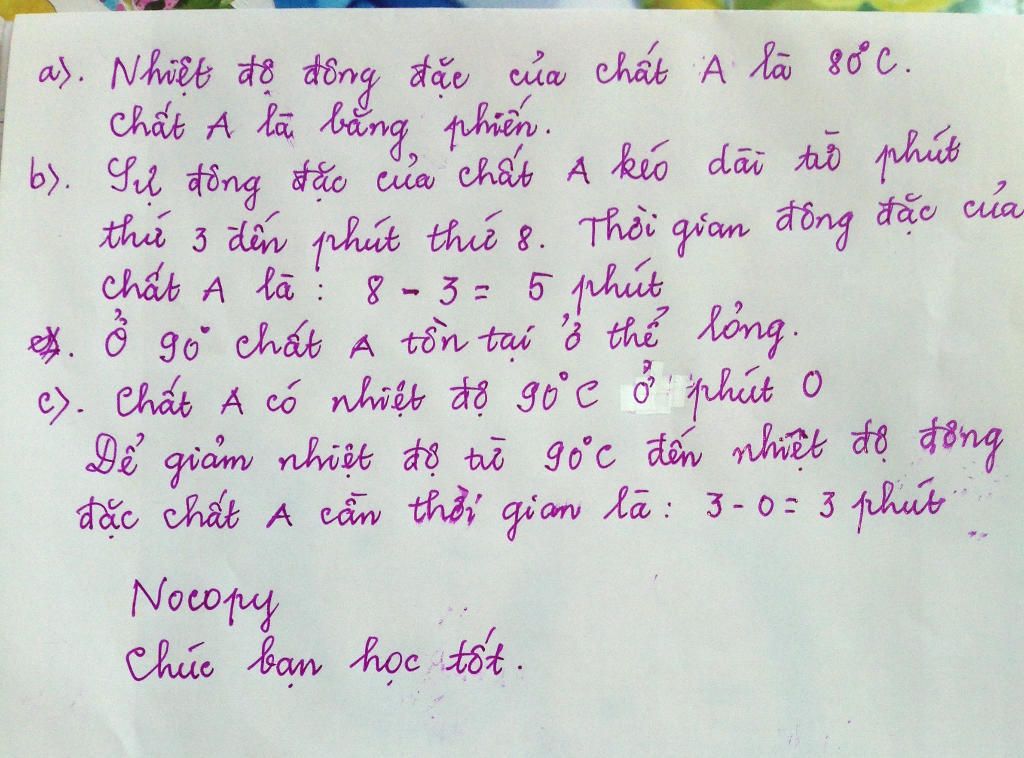 a). Nhiệt độ đông đặc của chất A là 80°C.
Chất A là băng phiến.
b). Sự đông đặc của chất A kéo dài từ phút
thứ 3 đến phút thứ 8. Thời gian đông đặc của
chất A là : 8 - 3 = 5 phút
. Ở 90° chất A tồn tại ở thể lỏng.
c). Chất A có nhiệt độ 90°C ở phút 0
Để giảm nhiệt độ từ 90°C đến nhiệt độ đông
đặc chất A cần thời gian là : 3 - 0 = 3 phút
Nocopy
Chúc bạn học tốt.